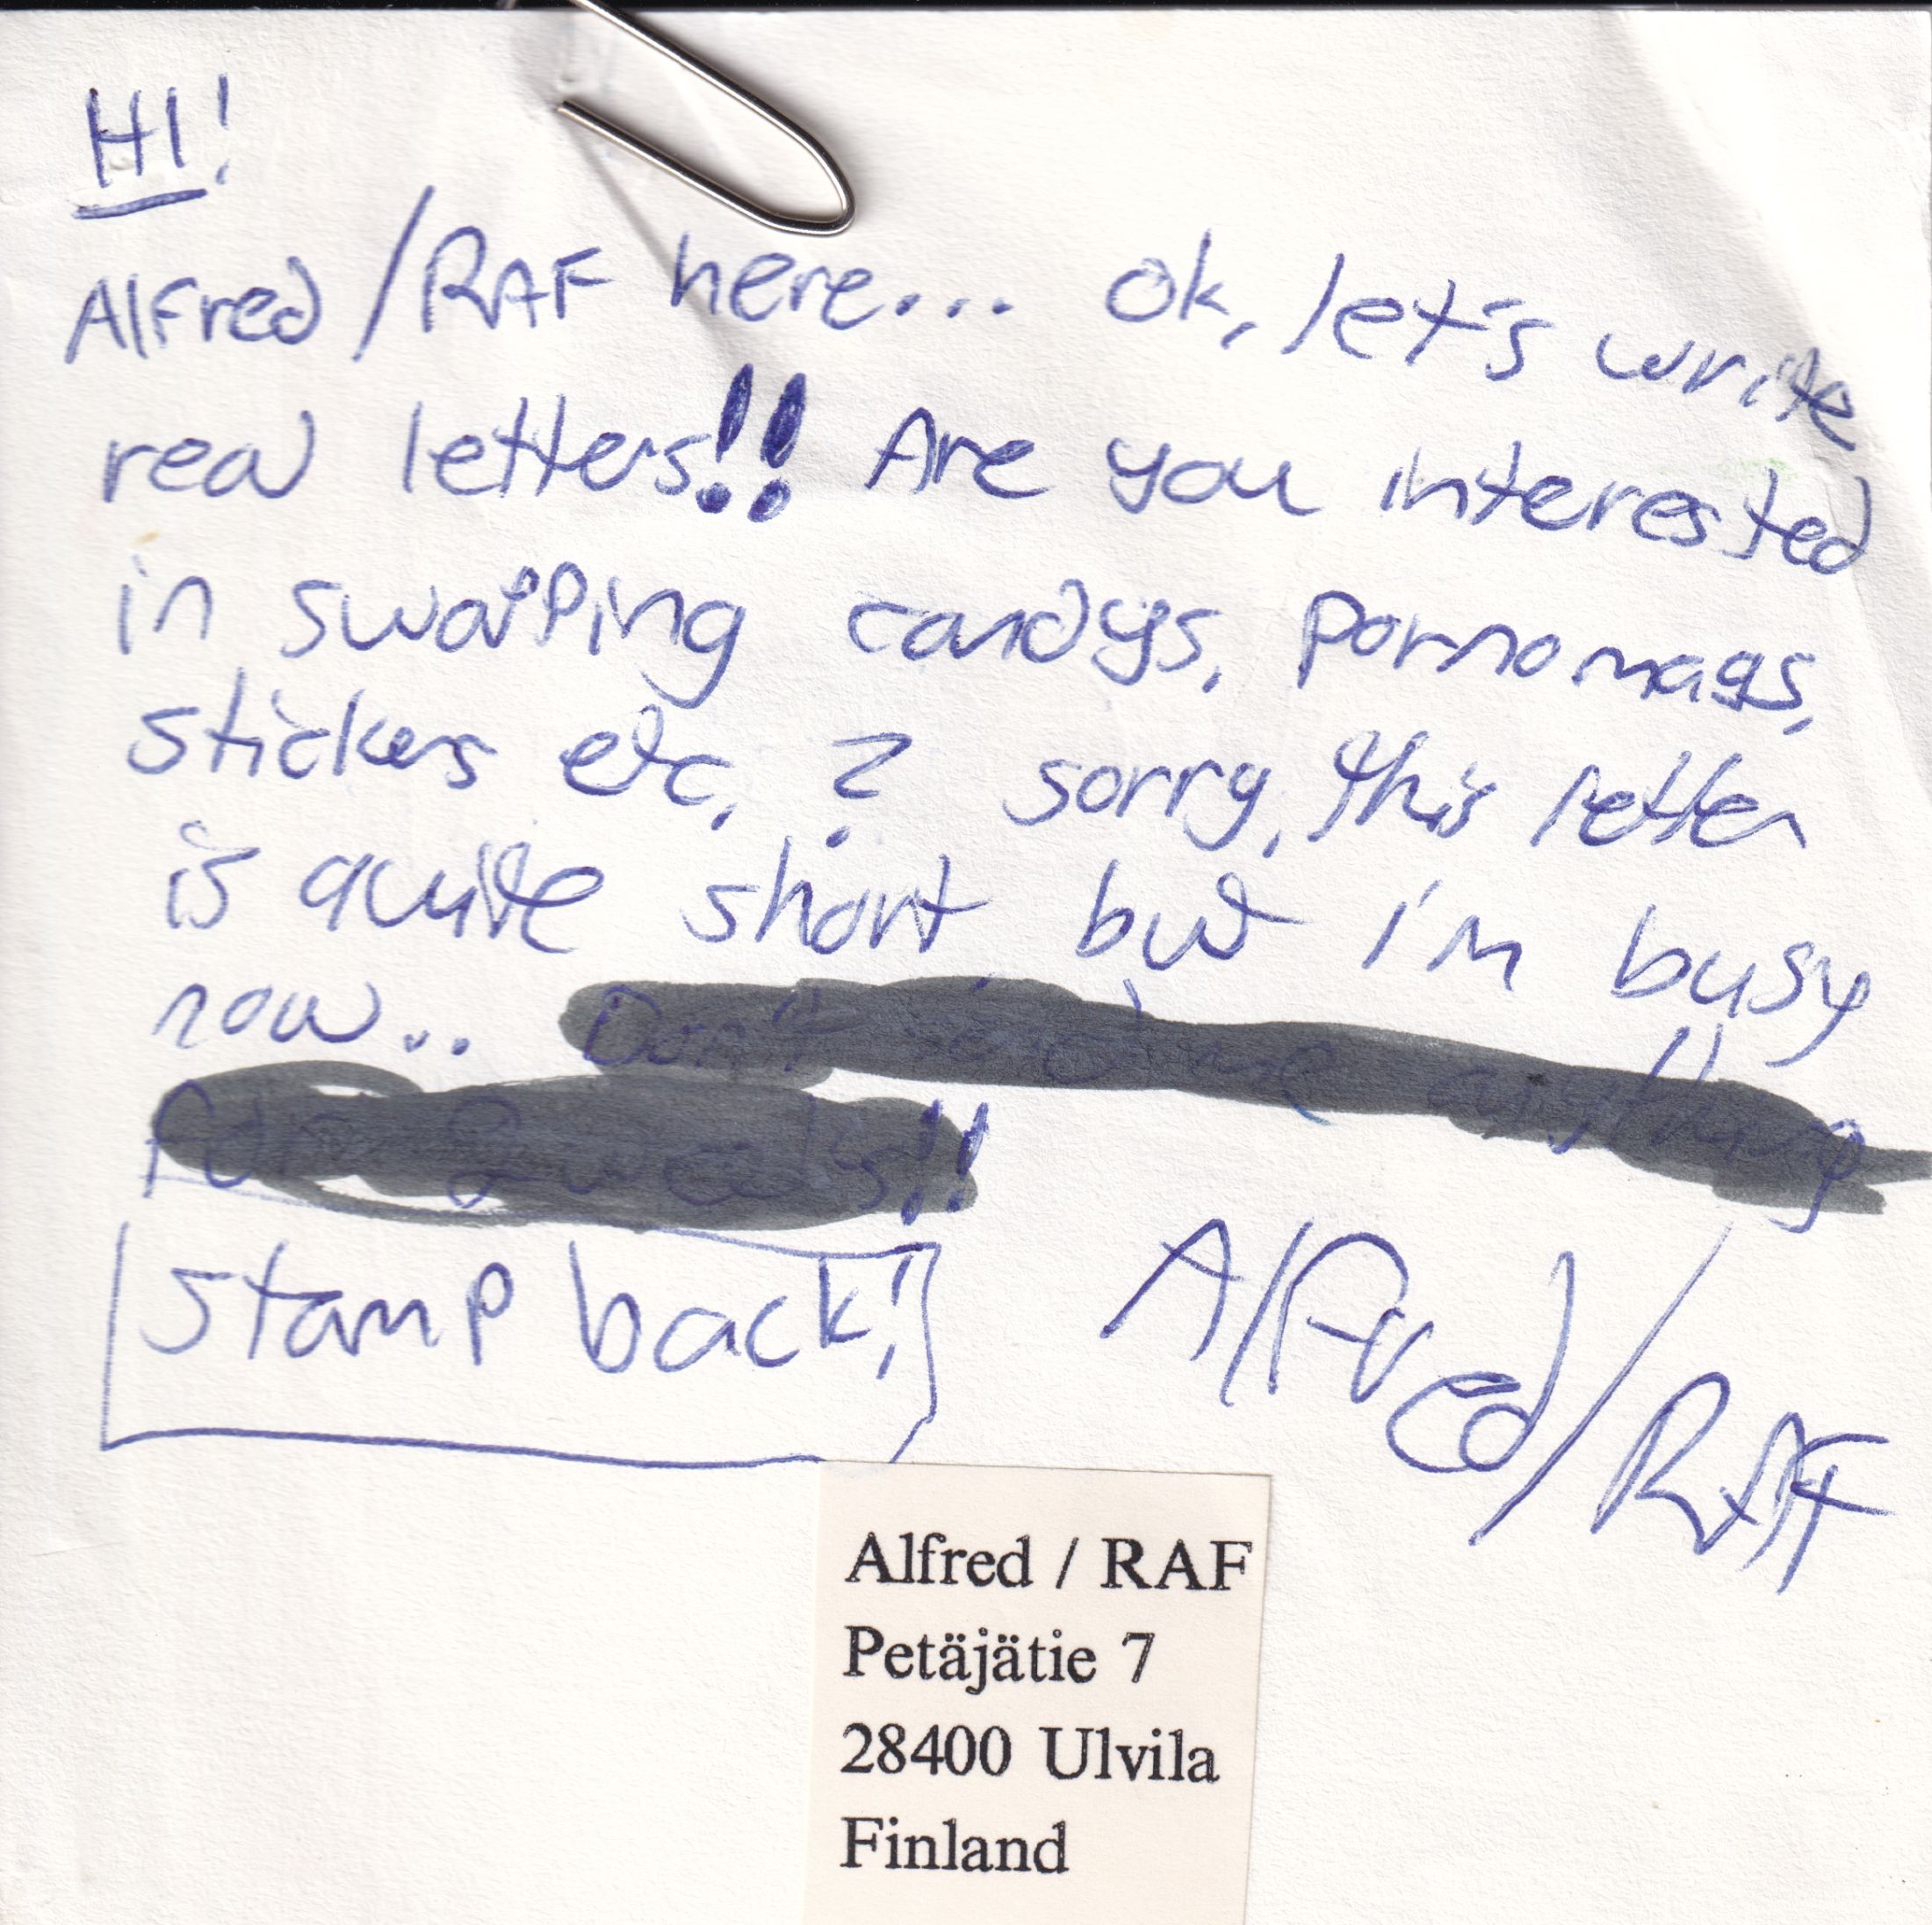 HI!
Alfred / RAF here... Ok, let's write
real letters!! Are you interested
in swapping candys, pornomags,
stickers etc. ? sorry, this letter
is quite short but i'm busy
now.. Don't send me anything
for 2 weeks!!
stamp back!
Alfred / RAF
Alfred / RAF
Petäjätie 7
28400 Ulvila
Finland